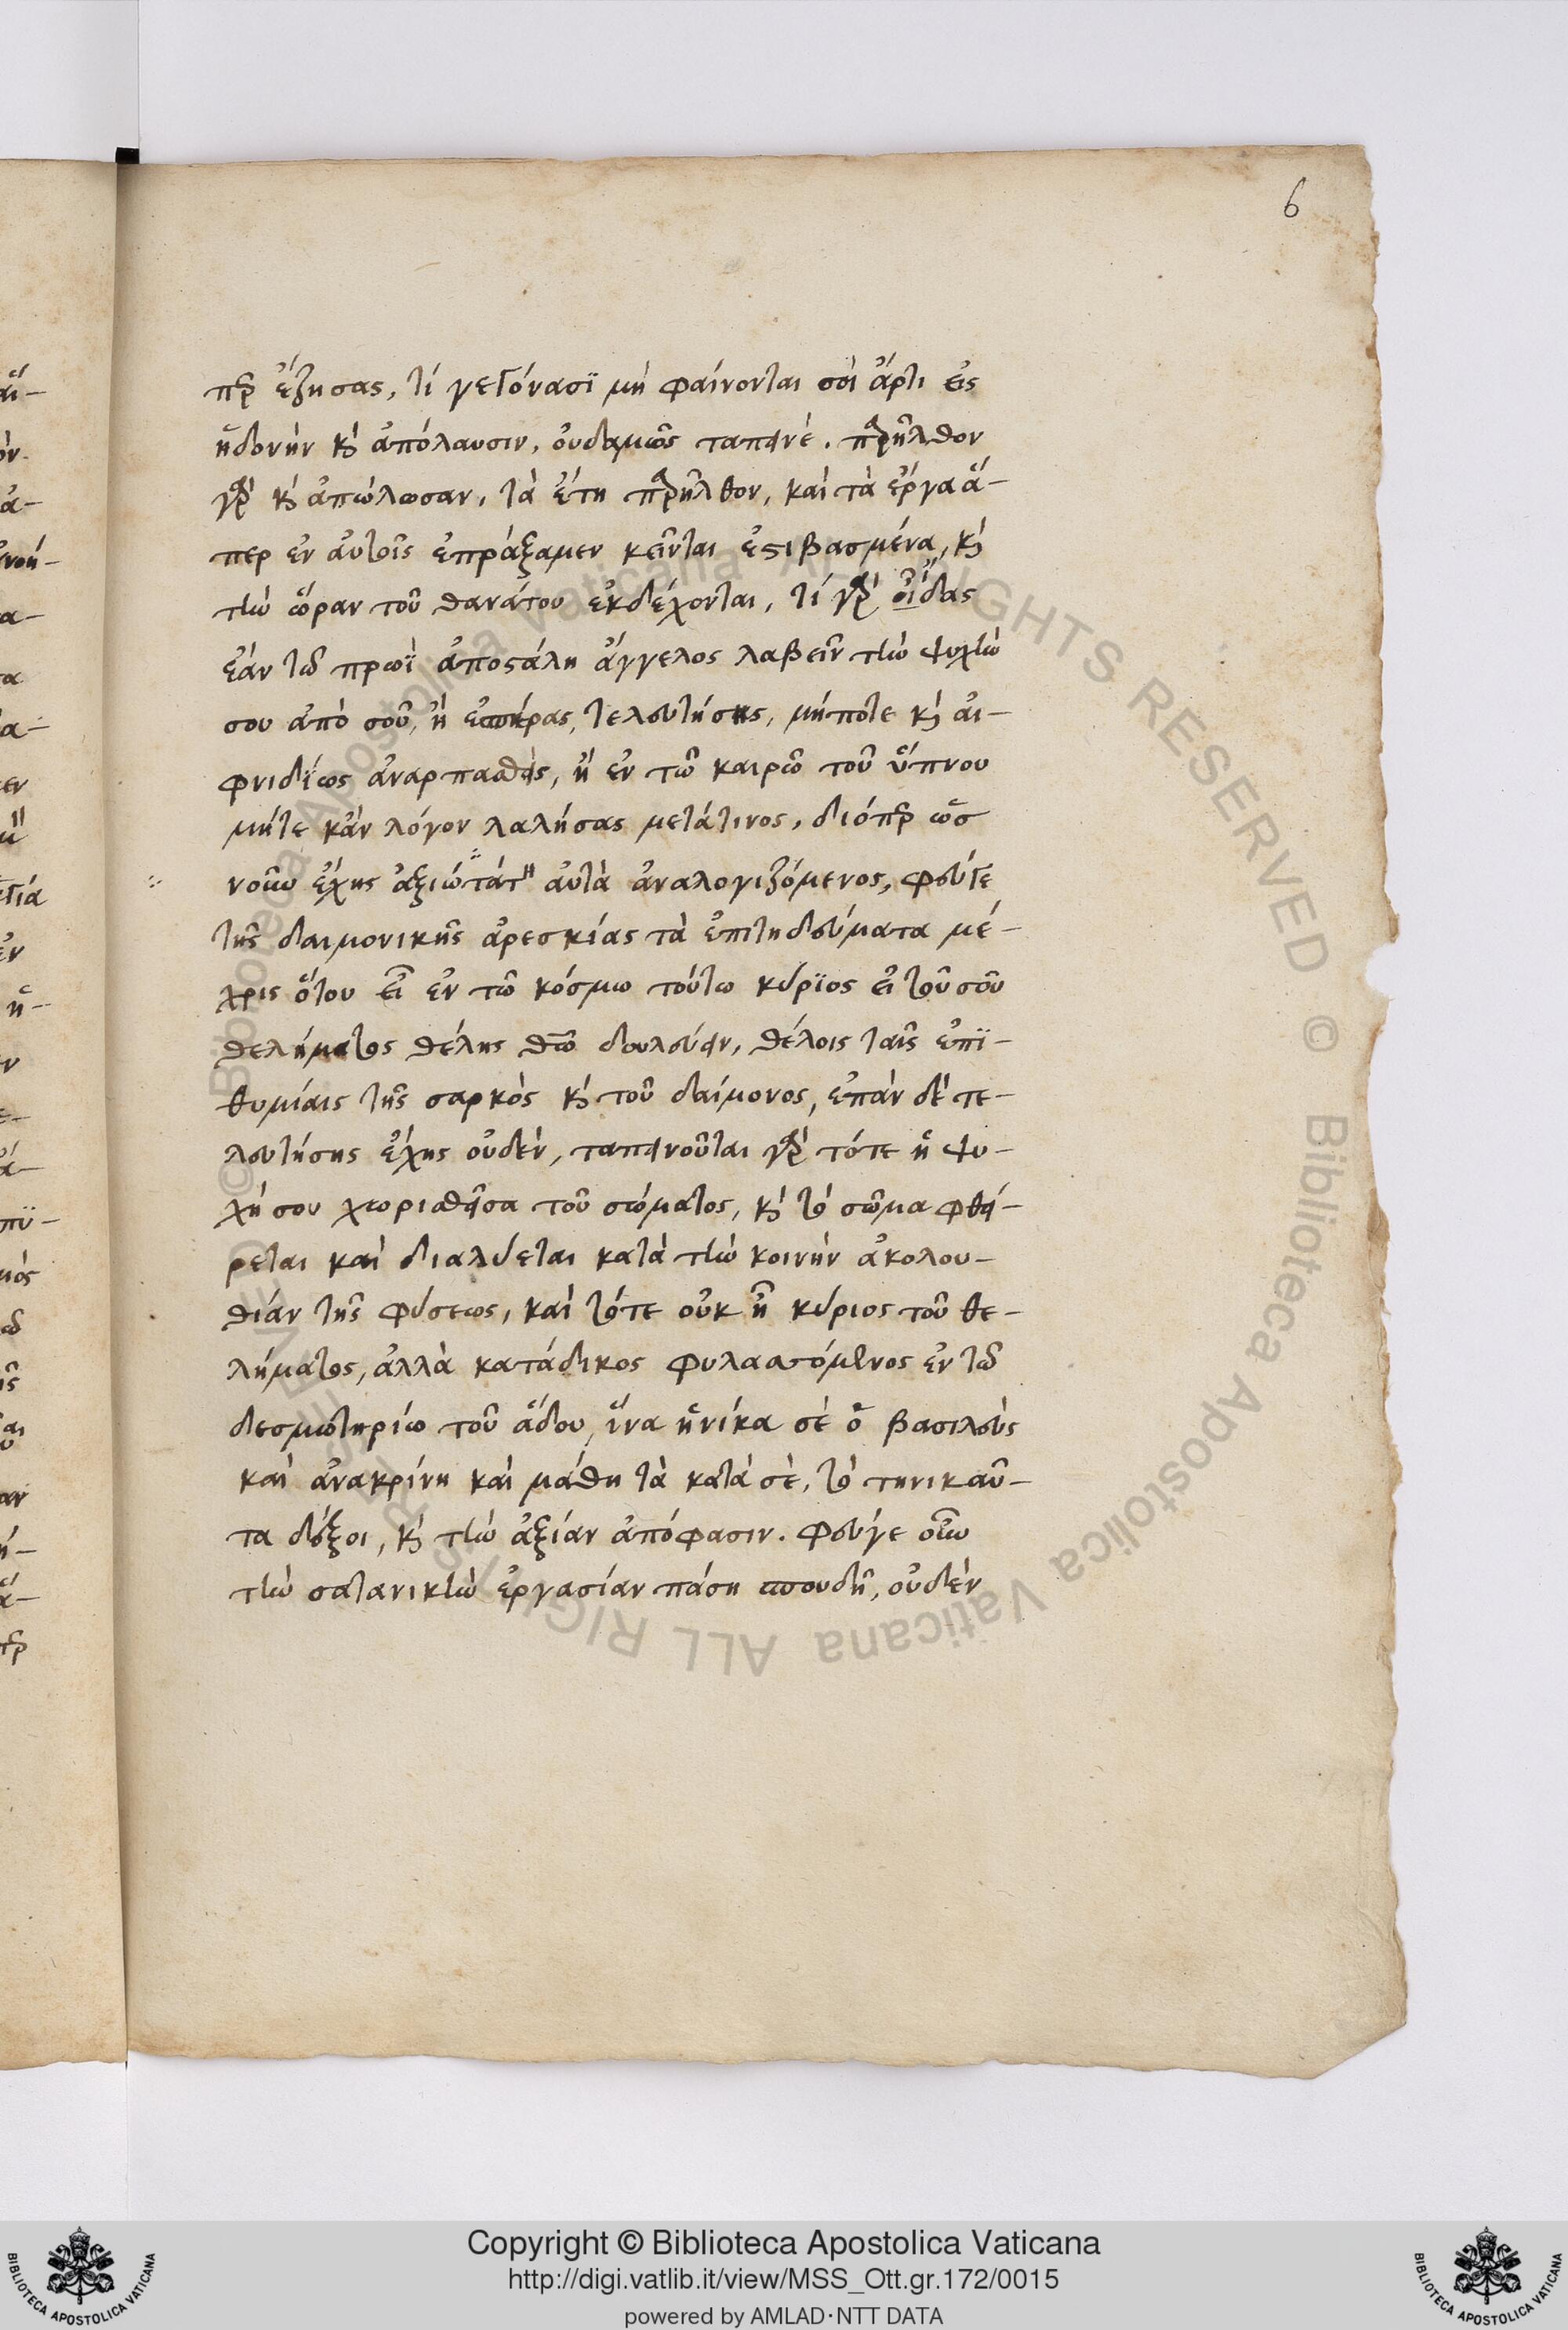 6
πὲρ ἔζησας, τί γεγόνασϊ μὴ φαίνονται σοὶ ἄρτι εἰς
ἡδονὴν κὶ ἀπόλαυσιν, οὐδαμῶς ταπεινέ. παρῆλθον
γὰρ κὶ ἀπώλωσαν, τὰ ἔτη παρῆλθον, καὶ τὰ ἔργα ἅ-
περ ἐν αὐτοῖς ἐπράξαμεν κεῖνται ἐστιβασμένα, κὶ
τὴν ὥραν τοῦ θανάτου ἐκδέχονται, τί γὰρ οἶδας
ἐὰν τῶ πρωῒ ἀποστάλη ἄγγελος λαβεῖν τὴν ψυχὴν
σου ἀπὸ σοῦ, ἢ ἑσπέρας, τελευτήσης, μήποτε κὶ αἰ-
φνιδΐως ἀναρπασθεὶς, ἢ ἐν τῶ καιρῶ τοῦ ὕπνου
μήτε κἂν λόγον λαλήσας μετάτινος, διόπερ ὡσ
νοῦν ἔχης ἀξιώτάτη αὐτὰ ἀναλογιζόμενος, φεύγε
τῆς δαιμονικῆς ἀρεσκίας τὰ ἐπιτηδεύματα μέ-
χρις ὅτου εἶ ἐν τῶ κόσμω τούτω κύρϊος εἶ τοῦ σοῦ
θελήματος θέλης θεῶ δουλεύειν, θέλοις ταῖς ἐπϊ-
θυμίαις τῆς σαρκὸς κὶ τοῦ δαίμονος, ἐπὰν δὲ τε-
λευτήσης ἔχης οὐδὲν, ταπεινοῦται γὰρ τότε ἡ ψυ-
χή σου χωρισθεῖσα τοῦ σώματος, κὶ τὸ σῶμα φθεί-
ρεται καὶ διαλύεται κατὰ τὴν κοινὴν ἀκολου-
θίαν τῆς φύσεως, καὶ τότε οὐκ ἦ κύριος τοῦ θε-
λήματος, ἀλλὰ κατάδικος φυλασσόμενος ἐν τῶ
δεσμωτηρίω τοῦ ἅδου, ἵνα ἡνίκα σὲ ὁ βασιλεὺς
καὶ ἀνακρίνη καὶ μάθη τὰ κατὰ σὲ, τὸ τηνικαῦ-
τα δόξοι, κὶ τὴν ἀξίαν ἀπόφασιν. φεύγε οὖν
τὴν σατανικὴν ἐργασίαν πάση σπουδῆ, οὐδὲν
Copyright © Biblioteca Apostolica Vaticana
http://digi.vatlib.it/view/MSS_Ott.gr.172/0015
powered by AMLAD·NTT DATA